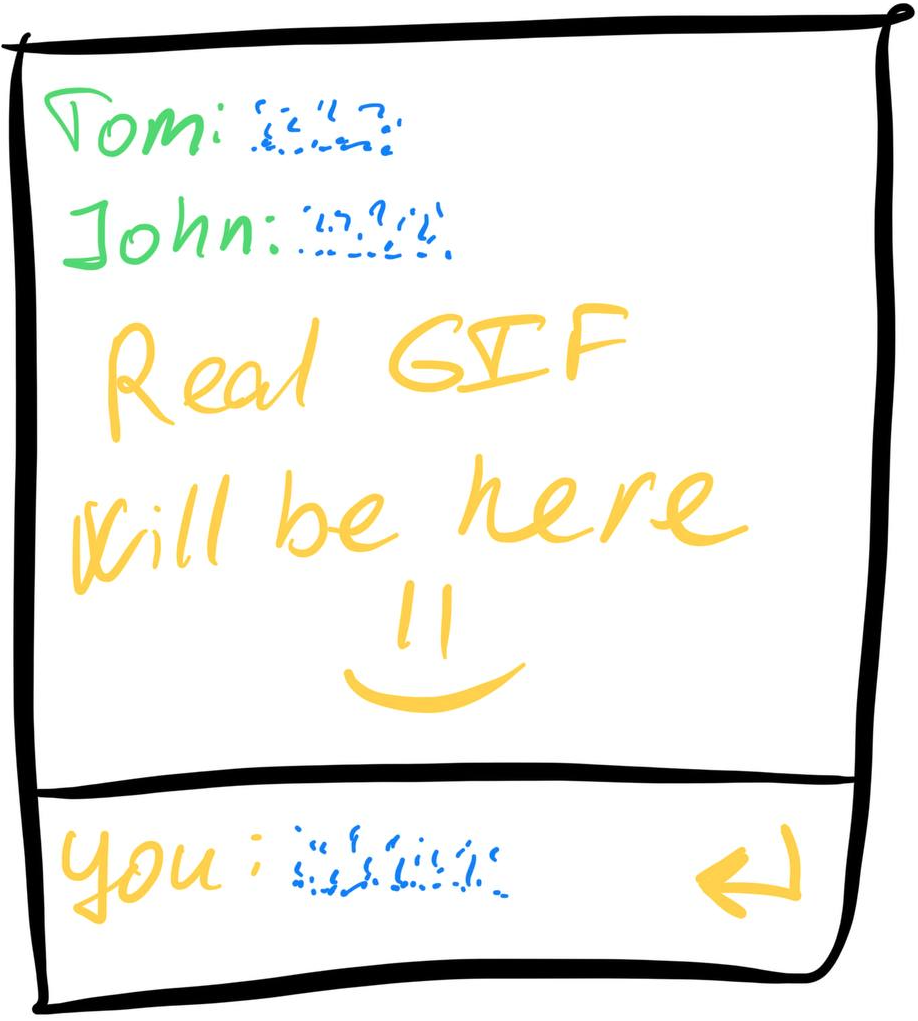 Tom:
John:
Real GIF
will be here
You: